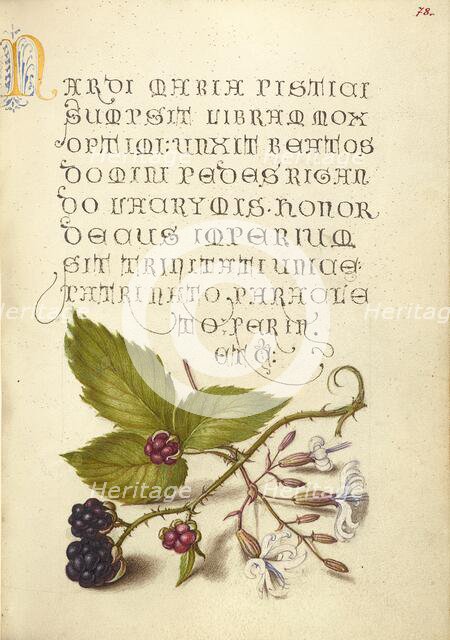 78.
NARDI MARIA PISTICI
SUMPSIT LIBRAM MOX
OPTIMI: UNXIT BEATOS
DOMINI PEDES RIGAN
DO LACRYMIS. HONOR
DECUS IMPERIUM
SIT TRINITATI UNICE.
PATRI NATO. PARACLE
TO. PER IN.
ET Q:
Heritage Heritage Heritage
Heritage Heritage Heritage
Heritage Heritage Heritage